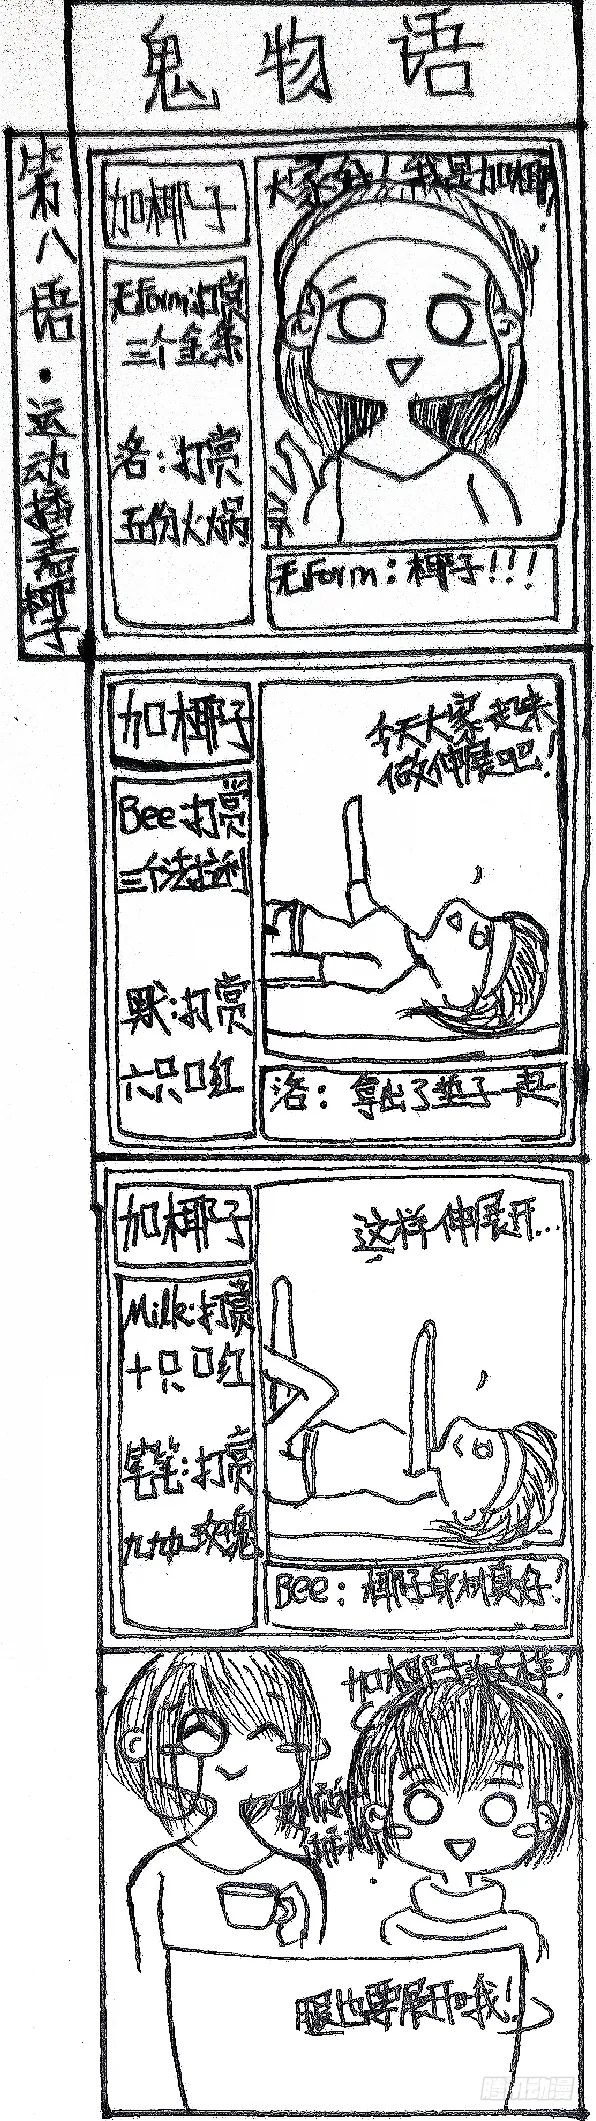 鬼物语
第八语·运动播主椰子
加椰子
大家好！我是加椰
无form:打赏
三个金条
洛：打赏
五份火火锅
无form：椰子!!!
加椰子
今天大家起来
做伸展吧！
Bee:打赏
三个法拉利
默:打赏
六只口红
洛：拿出了垫子一起
加椰子
这样伸展开...
Milk:打赏
十只口红
笔笔:打赏
玫瑰
Bee：椰子身材真好！
加椰子好棒！
腿也要展开哦！
腾讯动漫